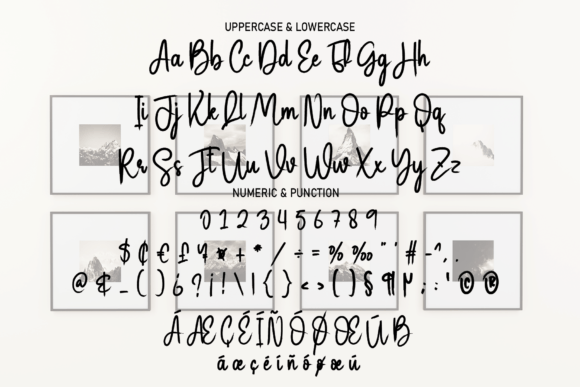 UPPERCASE & LOWERCASE
Aa Bb Cc Dd Ee Ff Gg Hh
Ii Jj Kk Ll Mm Nn Oo Pp Qq
Rr Ss Tt Uu Vv Ww Xx Yy Zz
NUMERIC & PUNCTION
0 1 2 3 4 5 6 7 8 9
$ ¢ € £ ¥ ¤ + * / ÷ = % ‰ " ' # - ^ , .
@ & _ ( ) ¿ ? ¡ ! \ | { } < > ( ) § ¶ µ ; : ' © ®
Á Æ Ç É Í Ñ Ó Ø Œ Ú ß
á æ ç é í ñ ó ø œ ú